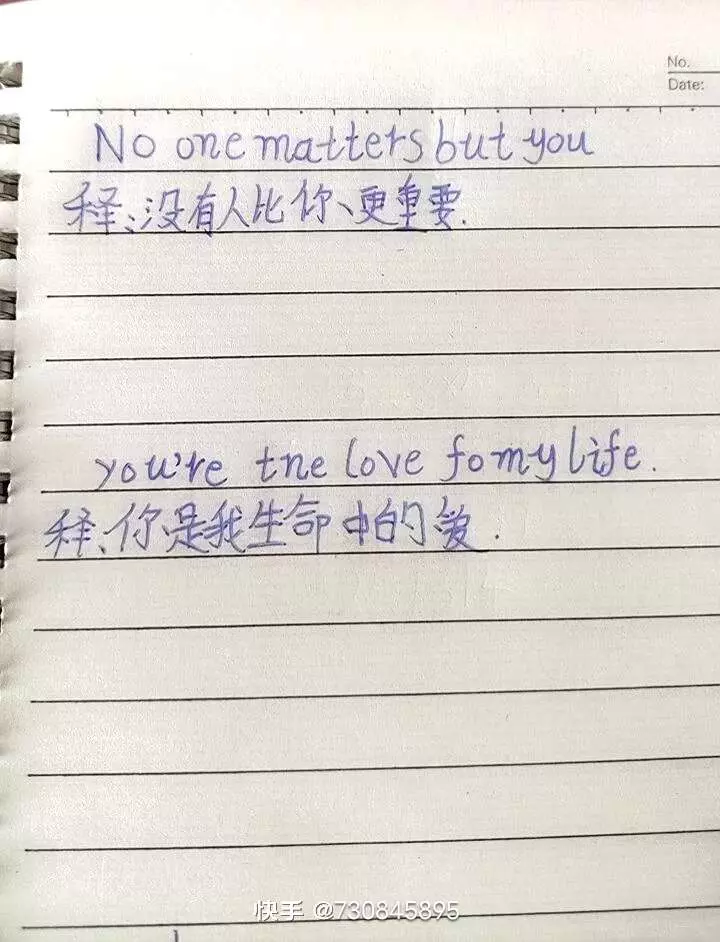 No.
Date:
No one matters but you
释:没有人比你、更重要.
you're tne love fo my life.
释、你是我生命中的爱.
快手 @730845895